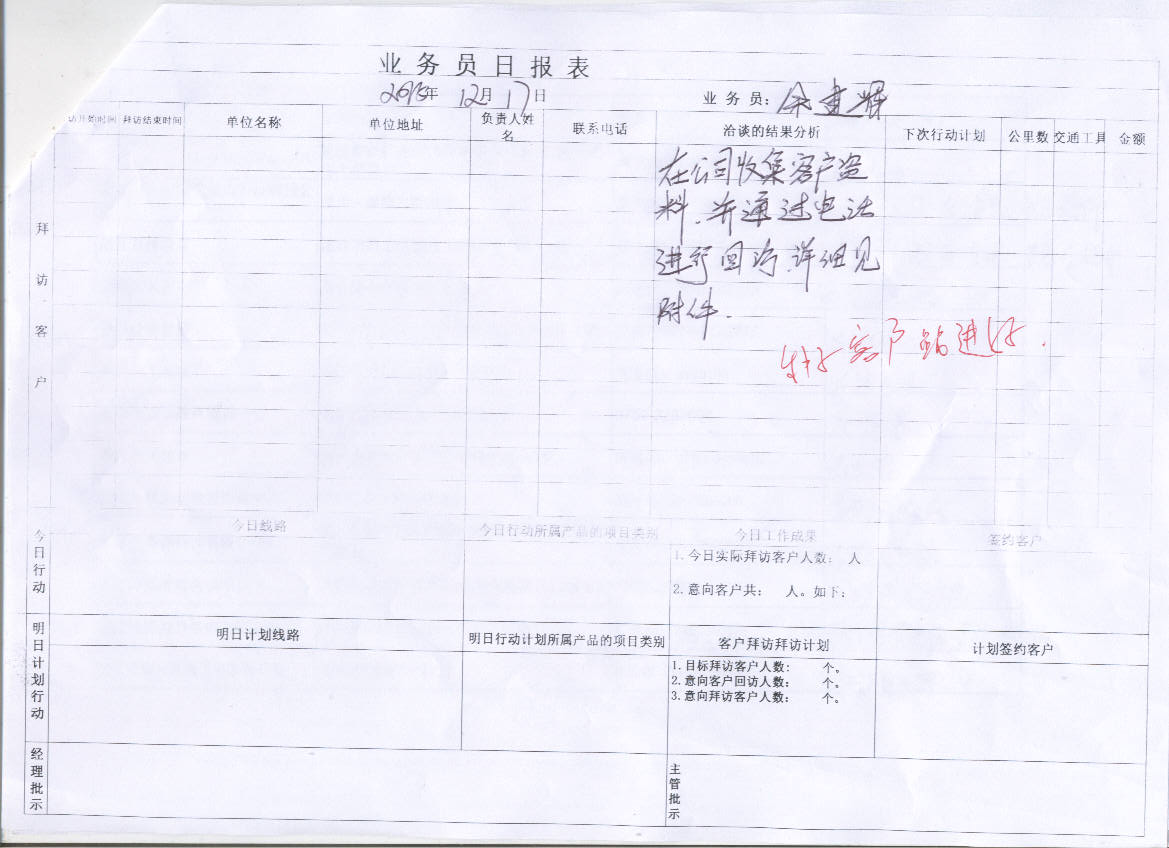 业务员日报表
年 12月17日 业务员: 余建辉
访开始时间 拜访结束时间 单位名称 单位地址 负责人姓名 联系电话 洽谈的结果分析 下次行动计划 公里数 交通工具 金额
拜访客户
在公司收集客户资
料.并通过电话
进行回访.详细见
附件.
客户 进行.
今日行动
今日线路 今日行动所属产品的项目类别 今日工作成果 签约客户
1.今日实际拜访客户人数: 人
2.意向客户共: 人。如下:
明日计划行动
明日计划线路 明日行动计划所属产品的项目类别 客户拜访拜访计划 计划签约客户
1.目标拜访客户人数: 个。
2.意向客户回访人数: 个。
3.意向拜访客户人数: 个。
经理批示 主管批示